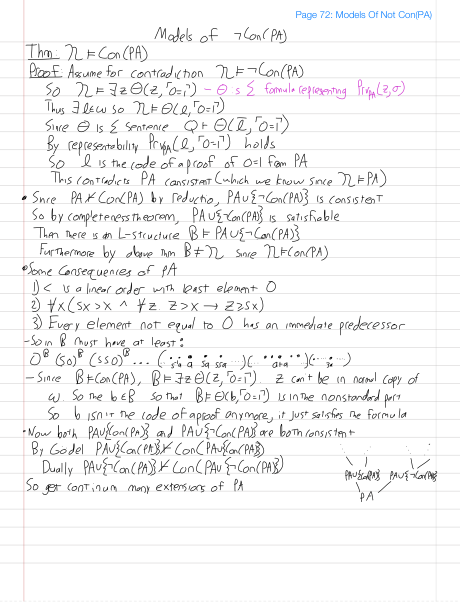 Page 72: Models Of Not Con(PA)
Models of ¬Con(PA)
Thm: 𝒩 ⊨ Con(PA)
Proof: Assume for contradiction 𝒩 ⊨ ¬Con(PA)
So 𝒩 ⊨ ∃z Θ(z, ⌜0=1⌝) - Θ is Σ formula representing Prv_PA(z,σ)
Thus ∃ l∈ω so 𝒩 ⊨ Θ(l, ⌜0=1⌝)
Since Θ is Σ sentence Q ⊢ Θ(l̄, ⌜0=1⌝)
By representability Prv_PA(l, ⌜0=1⌝) holds
So l is the code of a proof of 0=1 from PA
This contradicts PA consistent (which we know since 𝒩 ⊨ PA)
• Since PA ⊬ Con(PA) by reductio, PA∪{¬Con(PA)} is consistent
So by completeness theorem, PA∪{¬Con(PA)} is satisfiable
Then there is an L-structure B ⊨ PA∪{¬Con(PA)}
Furthermore by above thm B ≠ 𝒩 since 𝒩 ⊨ Con(PA)
• Some Consequences of PA
1) < is a linear order with least element 0
2) ∀x(Sx>x ∧ ∀z. z>x → z≥Sx)
3) Every element not equal to 0 has an immediate predecessor
- So in B must have at least:
0^B (S0)^B (SS0)^B ... (... a sa ssa ...)(... a+a ...)(...)
- Since B ⊨ ¬Con(PA), B ⊨ ∃z Θ(z, ⌜0=1⌝). z can't be in normal copy of
ω. So the b∈B so that B ⊨ Θ(b, ⌜0=1⌝) is in the nonstandard part
So b isn't the code of a proof anymore, it just satisfies the formula
• Now both PA∪{Con(PA)} and PA∪{¬Con(PA)} are both consistent
By Godel PA∪{Con(PA)} ⊬ Con(PA∪{Con(PA)})
Dually PA∪{¬Con(PA)} ⊬ Con(PA∪{¬Con(PA)})
So get continuum many extensions of PA
PA∪{Con(PA)} PA∪{¬Con(PA)}
PA